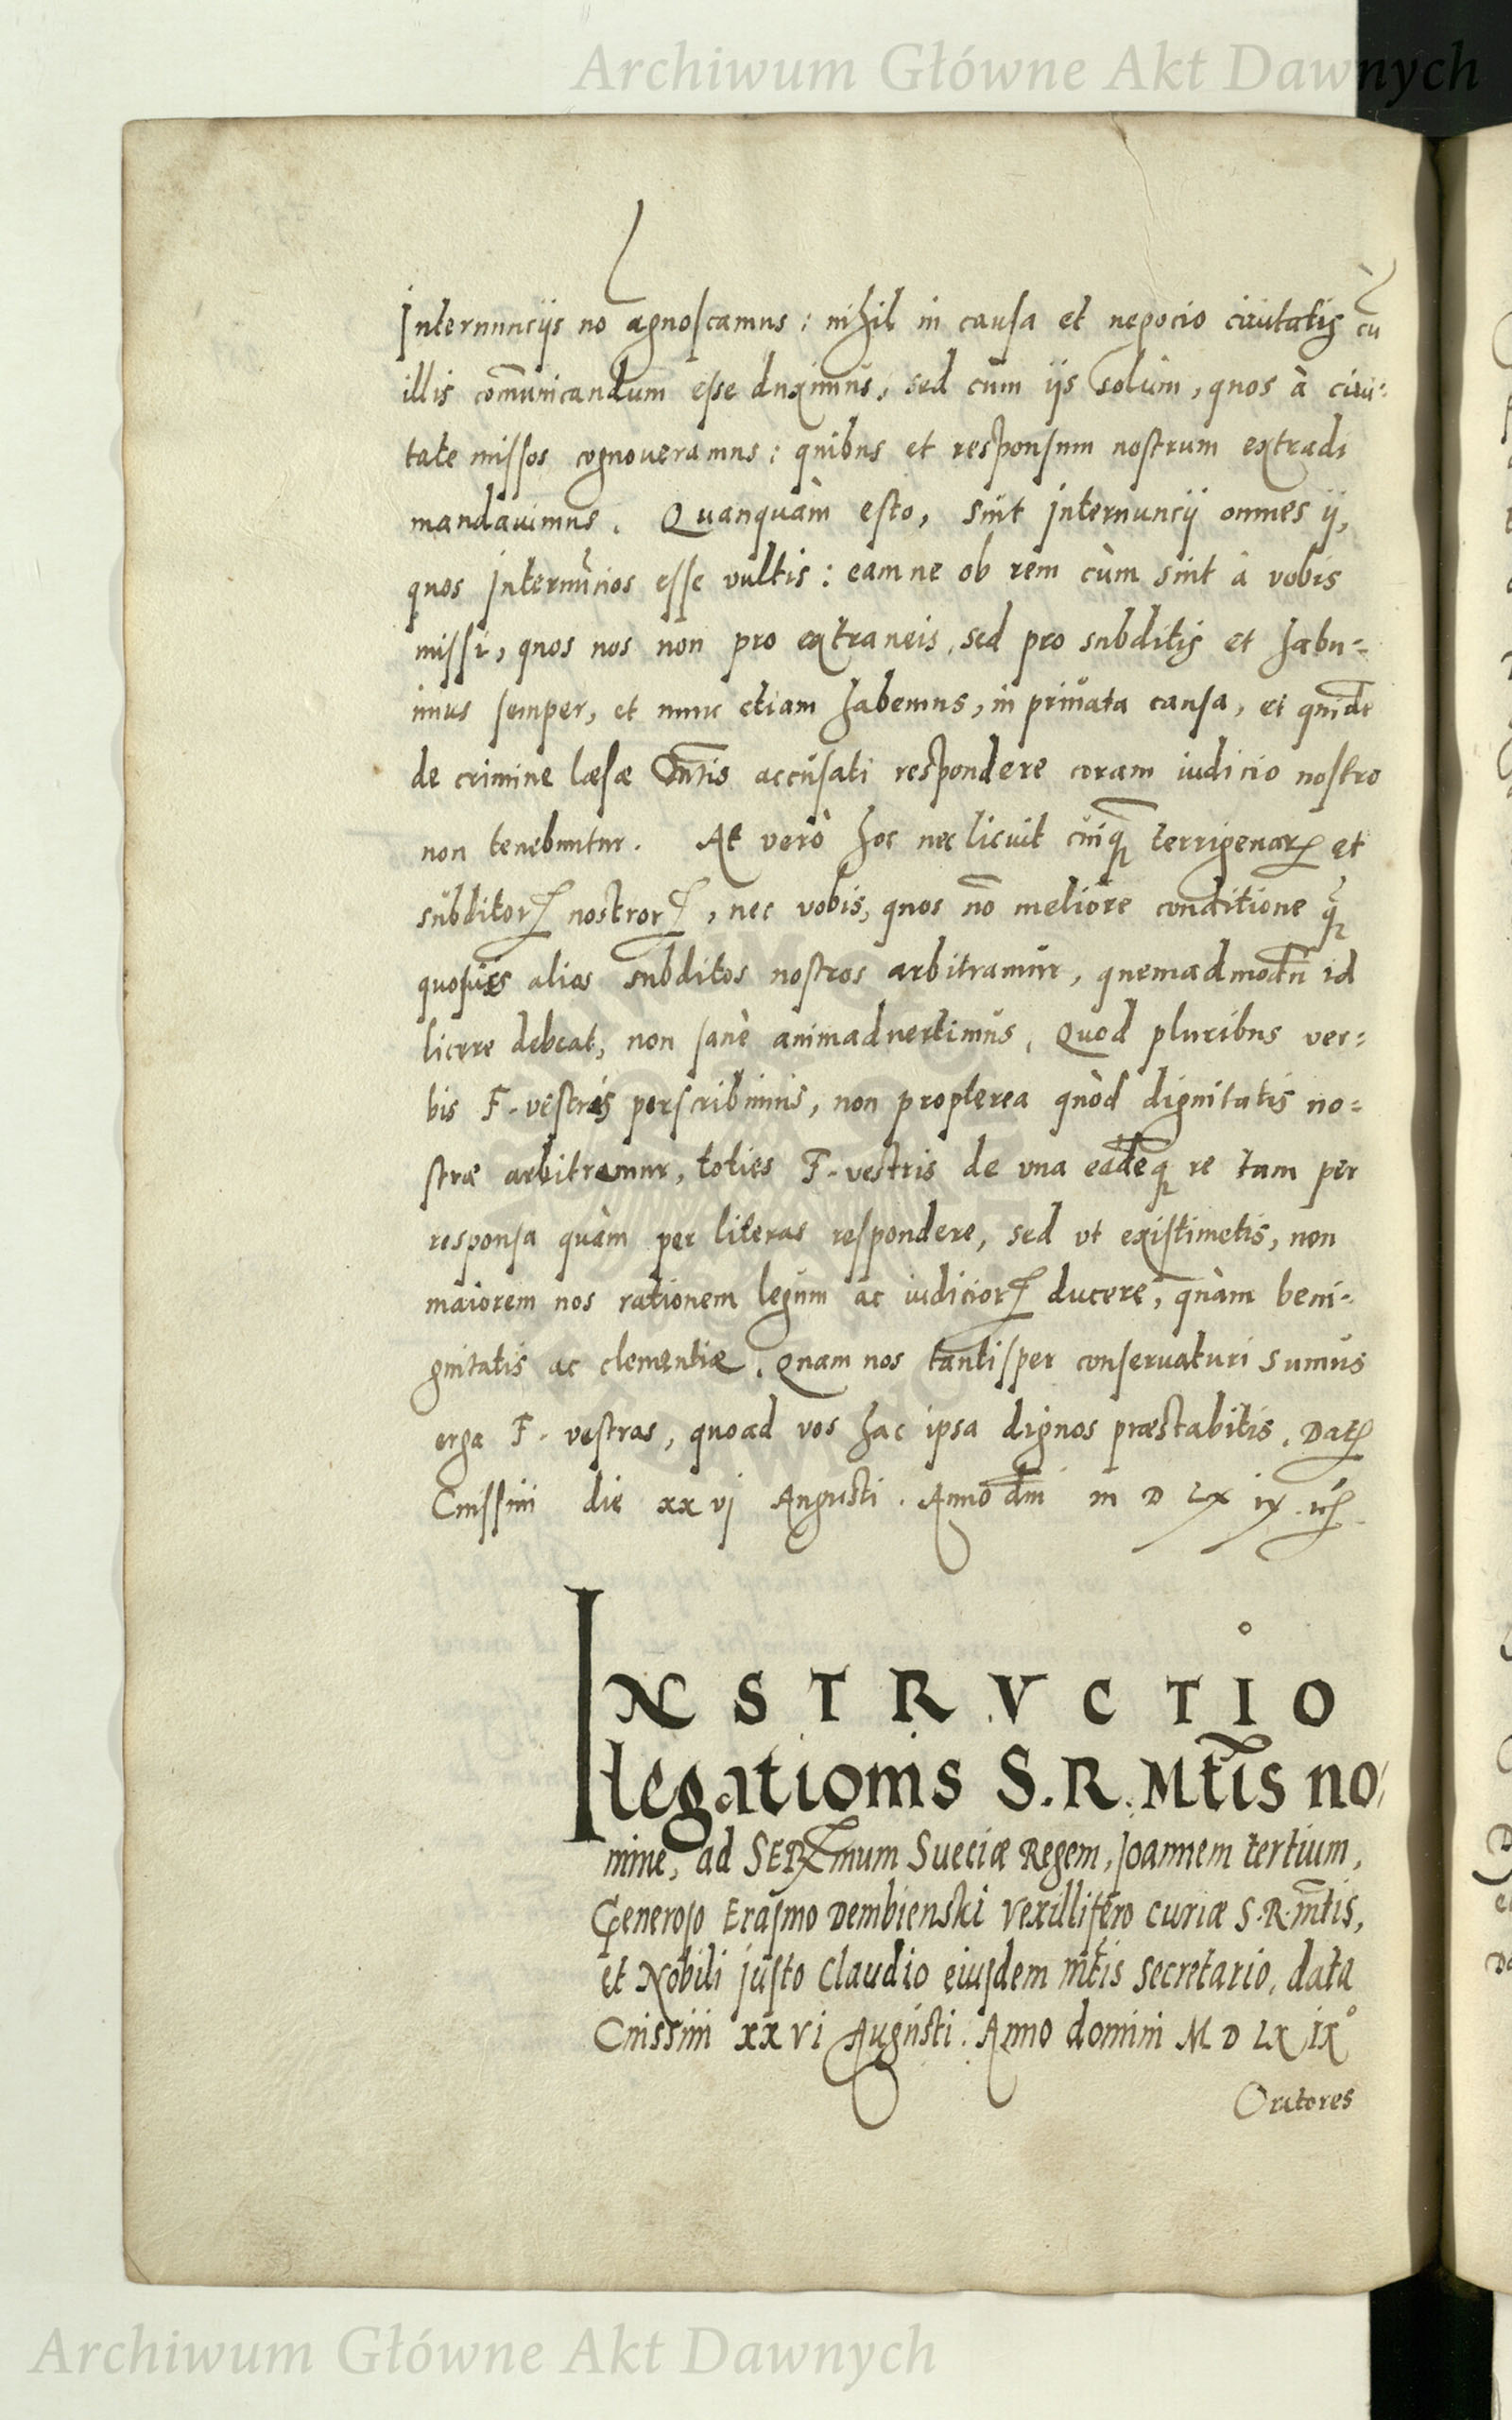 Archiwum Główne Akt Dawnych
Internuncijs nō agnoscamus: nihil in causa et negocio ciuitatis cū
illis cōmunicandum esse duximus, sed cum ijs solùm, quos à ciui=
tate missos cognoueramus: quibus et responsum nostrum extradi
mandauimus. Quanquàm esto, sint internuncij omnes ij,
quos internūcios esse vultis: eam ne ob rem cùm sint à vobis
missi, quos nos non pro extraneis, sed pro subditis et habu=
imus semper, et nunc etiam habemus, in priuata causa, et quidē
de crimine læsæ Mtis accusati respondere coram iudicio nostro
non tenebuntur. At verò hoc nec licuit cuiqȝ terrigenarꝝ et
subditorꝝ nostrorꝝ, nec vobis, quos nō meliore conditione qȝ
quosuis alios subditos nostros arbitramur, quemadmodū id
licere debeat, non sanè animaduertimus. Quod pluribus ver=
bis F. vestris perscribimus, non propterea quòd dignitatis no=
stræ arbitremur, toties F. vestris de vna eadēqȝ re tam per
responsa quàm per literas respondere, sed vt existimetis, non
maiorem nos rationem legum ac iudiciorꝝ ducere, quàm beni=
gnitatis ac clementiæ. Quam nos tantisper conseruaturi sumus
erga F. vestras, quoad vos hac ipsa dignos præstabitis. Datꝝ
Cnissini die xxvj Augusti. Anno dni M D LX ix.
INSTRVCTIO
legationis S. R. Mtis no=
mine, ad SERmum Sueciæ Regem, Joannem tertium,
Generoso Erasmo Dembienski vexillifero curiæ S. R. mtis,
et Nobili justo Claudio eiusdem mtis secretario, data
Cnissini xxvi Augusti. Anno domini M D LX IX°
Oratores
Archiwum Główne Akt Dawnych